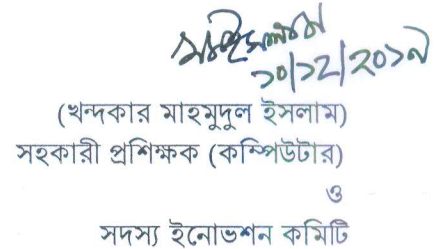 ১০/১২/২০১৭
(খন্দকার মাহমুদুল ইসলাম)
সহকারী প্রশিক্ষক (কম্পিউটার)
ও
সদস্য ইনোভশন কমিটি